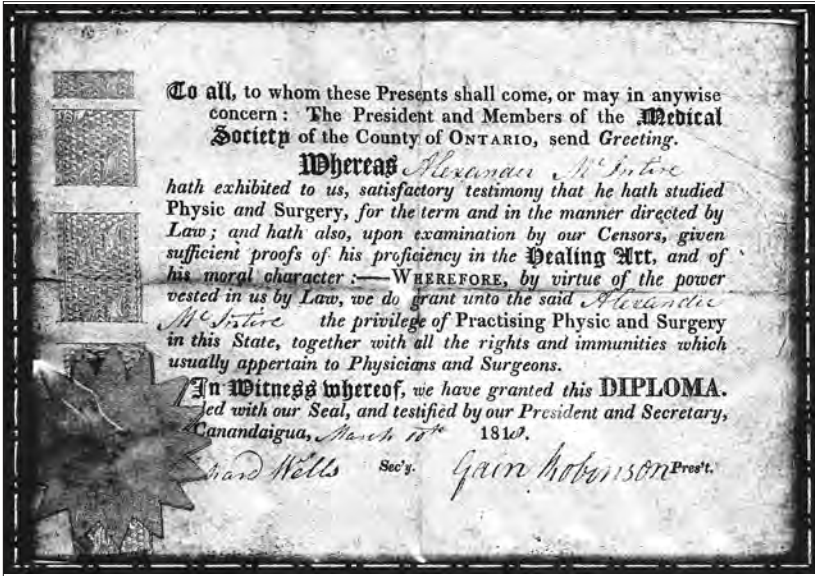 To all, to whom these Presents shall come, or may in anywise
concern: The President and Members of the Medical
Society of the County of ONTARIO, send Greeting.
Whereas Alexander Mc Intire
hath exhibited to us, satisfactory testimony that he hath studied
Physic and Surgery, for the term and in the manner directed by
Law; and hath also, upon examination by our Censors, given
sufficient proofs of his proficiency in the Healing Art, and of
his moral character:—WHEREFORE, by virtue of the power
vested in us by Law, we do grant unto the said Alexander
Mc Intire the privilege of Practising Physic and Surgery
in this State, together with all the rights and immunities which
usually appertain to Physicians and Surgeons.
In Witness whereof, we have granted this DIPLOMA.
led with our Seal, and testified by our President and Secretary,
Canandaigua, March 10th
Wells Sec'y. Gain Robinson Pres't.